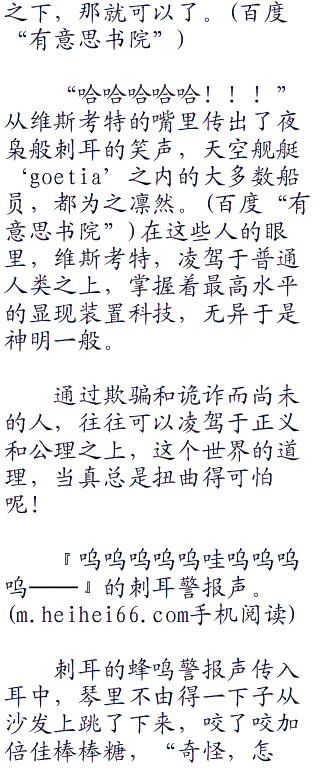 之下，那就可以了。(百度
“有意思书院”)
“哈哈哈哈哈！！！”
从维斯考特的嘴里传出了夜
枭般刺耳的笑声，天空舰艇
‘goetia’之内的大多数船
员，都为之凛然。(百度“有
意思书院”)在这些人的眼
里，维斯考特，凌驾于普通
人类之上，掌握着最高水平
的显现装置科技，无异于是
神明一般。
通过欺骗和诡诈而尚未
的人，往往可以凌驾于正义
和公理之上，这个世界的道
理，当真总是扭曲得可怕
呢！
『呜呜呜呜呜哇呜呜呜
呜——』的刺耳警报声。
(m.heihei66.com手机阅读)
刺耳的蜂鸣警报声传入
耳中，琴里不由得一下子从
沙发上跳了下来，咬了咬加
倍佳棒棒糖，“奇怪，怎